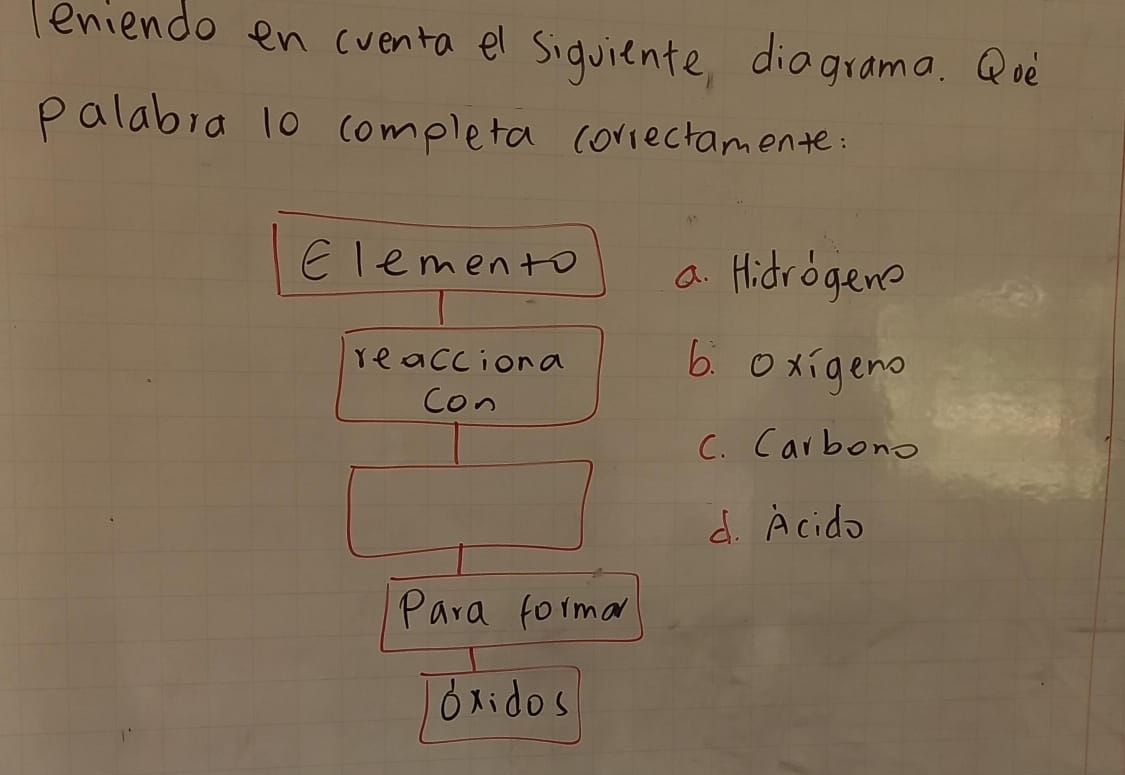 Teniendo en cuenta el siguiente, diagrama. Qué
palabra lo completa correctamente:
Elemento
reacciona
con
Para formar
óxidos
a. Hidrógeno
b. oxígeno
c. Carbono
d. Ácido